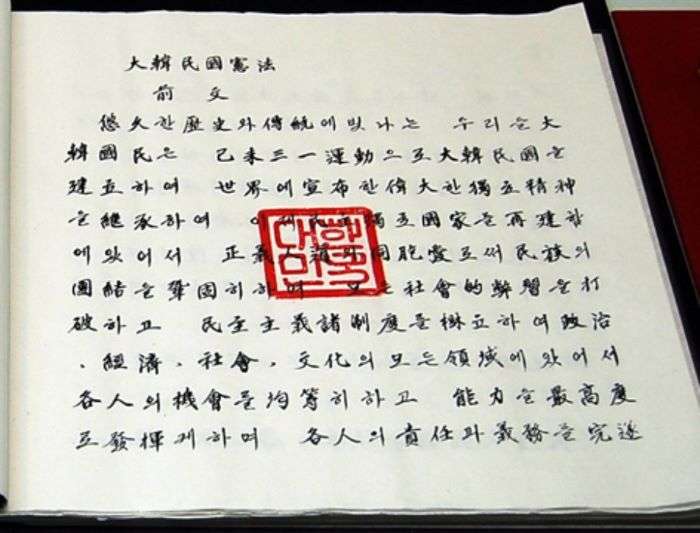 大韓民國憲法
前文
悠久한歷史와傳統에빛나는 우리들大
韓國民은 己未三一運動으로大韓民國을
建立하여 世界에宣布한偉大한獨立精神
을繼承하여 이제民主獨立國家를再建함
에있어서 正義人道와同胞愛로써民族의
團結을鞏固히하며 모든社會的弊習을打
破하고 民主主義諸制度를樹立하여政治
、經濟、社會、文化의모든領域에있어서
各人의機會를均等히하고 能力을最高度
로發揮케하며 各人의責任과義務를完遂